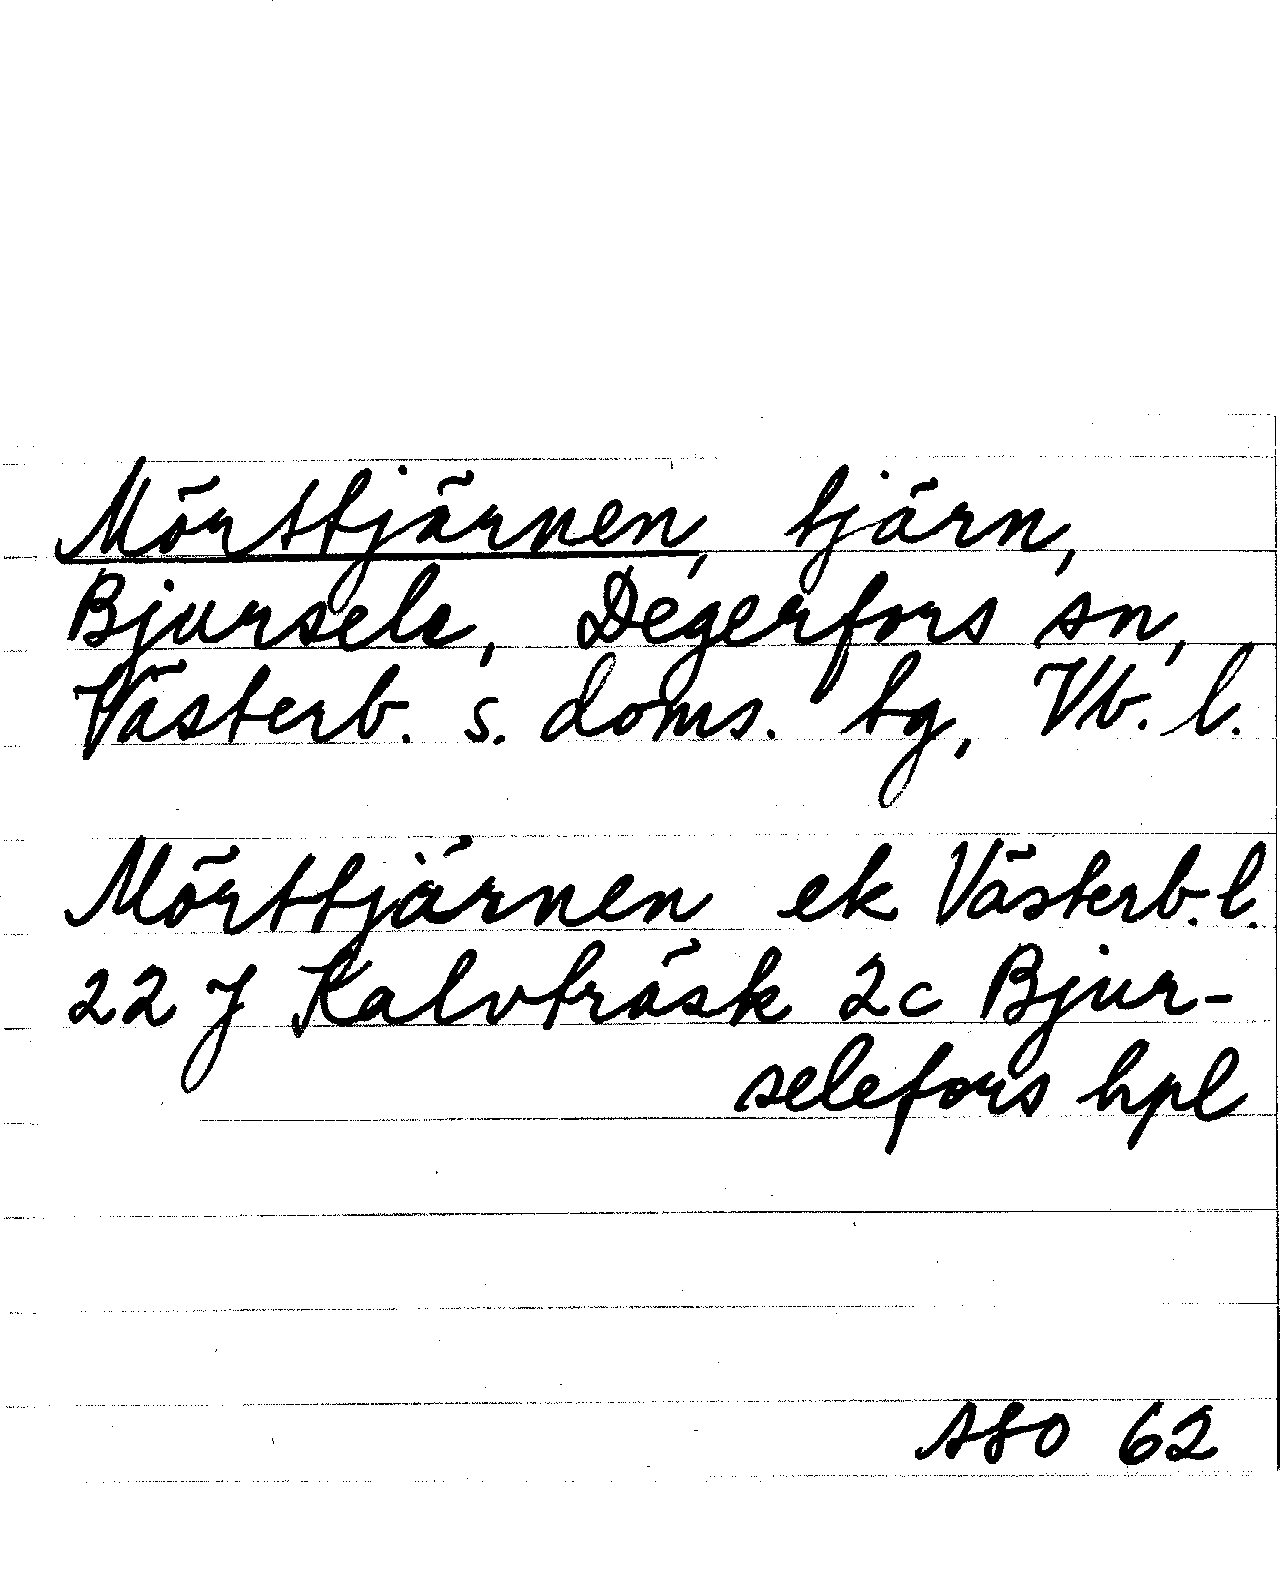 Mörttjärnen, tjärn,
Bjursele, Degerfors sn,
Västerb. s. doms. tg, Vb. l.
Mörttjärnen ek Västerb. l.
22 J Kalvträsk 2c Bjur-
selefors hpl
ASO 62